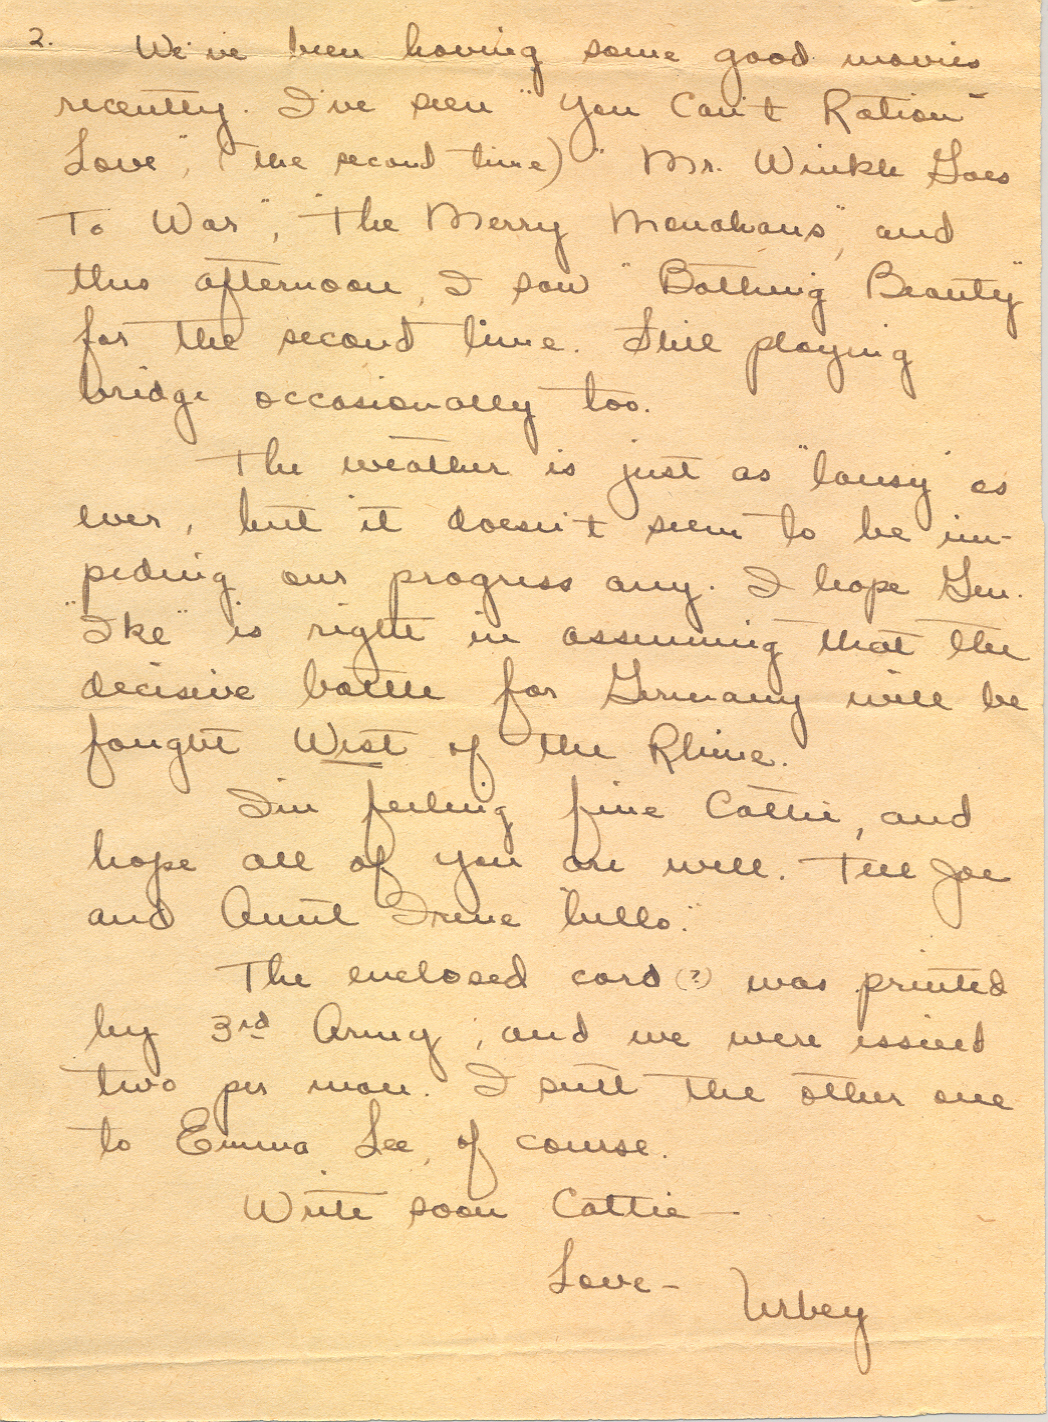 2. We've been having some good movies
recently. I've seen "You Can't Ration
Love", (the second time) "Mr. Winkle Goes
To War", "The Merry Monahans", and
this afternoon, I saw "Bathing Beauty"
for the second time. Still playing
bridge occasionally too.
The weather is just as "lousy" as
ever, but it doesn't seem to be im-
peding our progress any. I hope Gen.
"Ike" is right in assuming that the
decisive battle for Germany will be
fought West of the Rhine.
I'm feeling fine Cattie, and
hope all of you are well. Tell Joe
and Aunt Irene "hello."
The enclosed card (?) was printed
by 3rd Army, and we were issued
two per man. I sent the other one
to Emma Lee, of course.
Write soon Cattie—
Love— Urbey